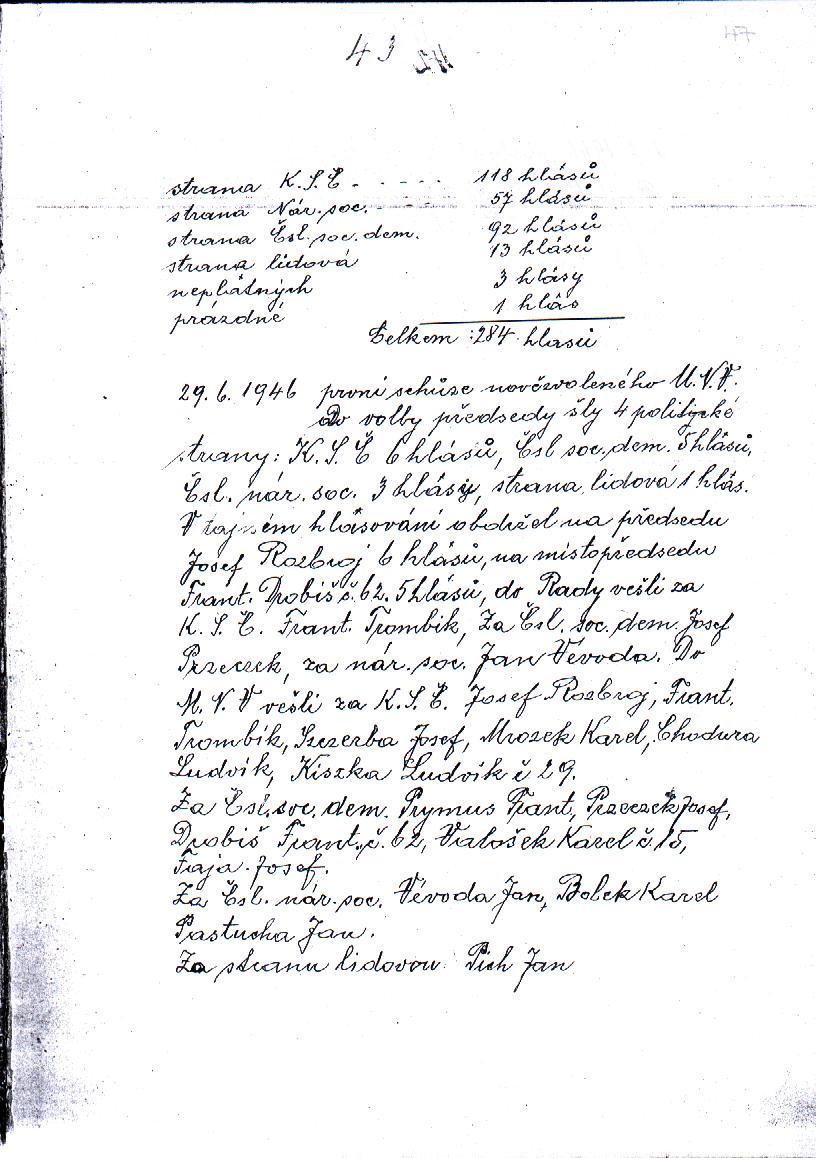 43
47
strana K.S.Č. - - - - - 118 hlásů
strana Nár. soc. - - 57 hlásů
strana Čsl. soc. dem. 92 hlásů
strana lidová 13 hlásů
neplátných 3 hlásy
prázdné 1 hlás
Celkem : 284 hlasů
29. 6. 1946 první schůze novězvoleného M.N.V.
Do volby předsedy šly 4 politycké
strany: K.S.Č 6 hlásů, Čsl soc. dem. 5 hlásů,
Čsl. nár. soc. 3 hlásy, strana lidová 1 hlás.
V tajném hlásování obdržel na předsedu
Josef Rozbroj 6 hlásů, na mistopředsedu
Frant. Drobiš č. 62. 5 hlásů, do Rady vešli za
K.S.Č. Frant. Trombik, Za Čsl. soc. dem. Josef
Przeczek, za nár. soc. Jan Vévoda. Do
M.N.V vešli za K.S.Č. Josef Rozbroj, Frant.
Trombik, Szczerba Josef, Mrozek Karel, Chodura
Ludvik, Kiszka Ludvik č 29.
Za Čsl. soc. dem. Prymus Frant., Przeczek Josef,
Drobiš Frant. č. 62, Valošek Karel č. 15,
Faja Josef.
Za Čsl. nár. soc. Vévoda Jan, Bolek Karel
Pastucha Jan.
Za stranu lidovou Pich Jan